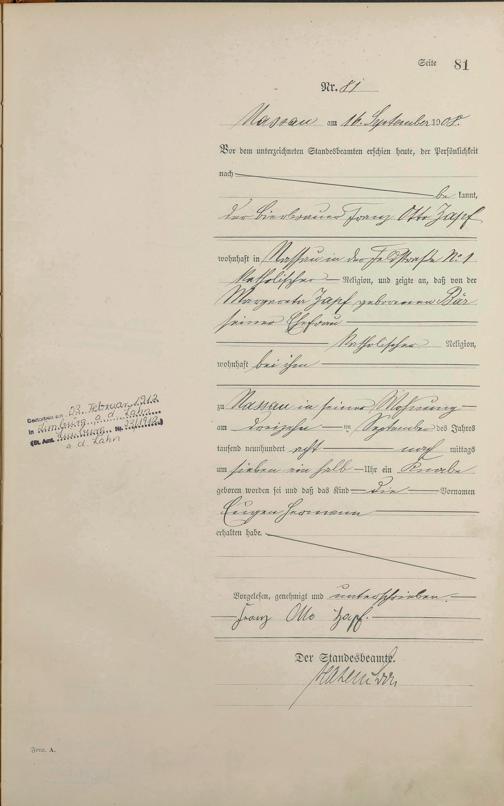 Seite 81
Nr. 81
Nassau am 16. September 1908.
Vor dem unterzeichneten Standesbeamten erschien heute, der Persönlichkeit
nach
be kannt,
der Bierbrauer Franz Otto Zapf
wohnhaft in Nassau in der Feldstraße No 1
katholischer Religion, und zeigte an, daß von der
Margareta Zapf geborenen Bär
seiner Ehefrau
katholischer Religion,
wohnhaft bei ihm
zu Nassau in seiner Wohnung
am dreizehn ten September des Jahres
tausend neunhundert acht nach mittags
um sieben ein halb Uhr ein Knabe
geboren worden sei und daß das Kind die Vornamen
Eugen Hermann
erhalten habe.
Vorgelesen, genehmigt und unterschrieben.
Franz Otto Zapf.
Der Standesbeamte.
Gestorben am 02. Februar
in Limburg a. d. Lahn
(St. Amt Limburg Nr.
a. d. Lahn
Form. A.